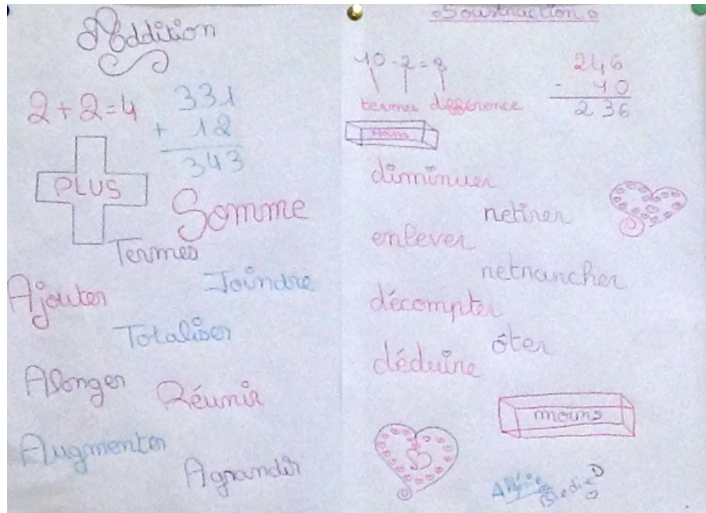 Addition
2+2=4
331
+ 12
343
PLUS
Somme
Termes
Ajouter
Joindre
Totaliser
Alonger
Réunir
Augmenter
Agrandir
Soustraction
10-2=8
termes différence
246
- 10
236
moins
diminuer
retirer
enlever
retrancher
décompter
ôter
déduire
moins